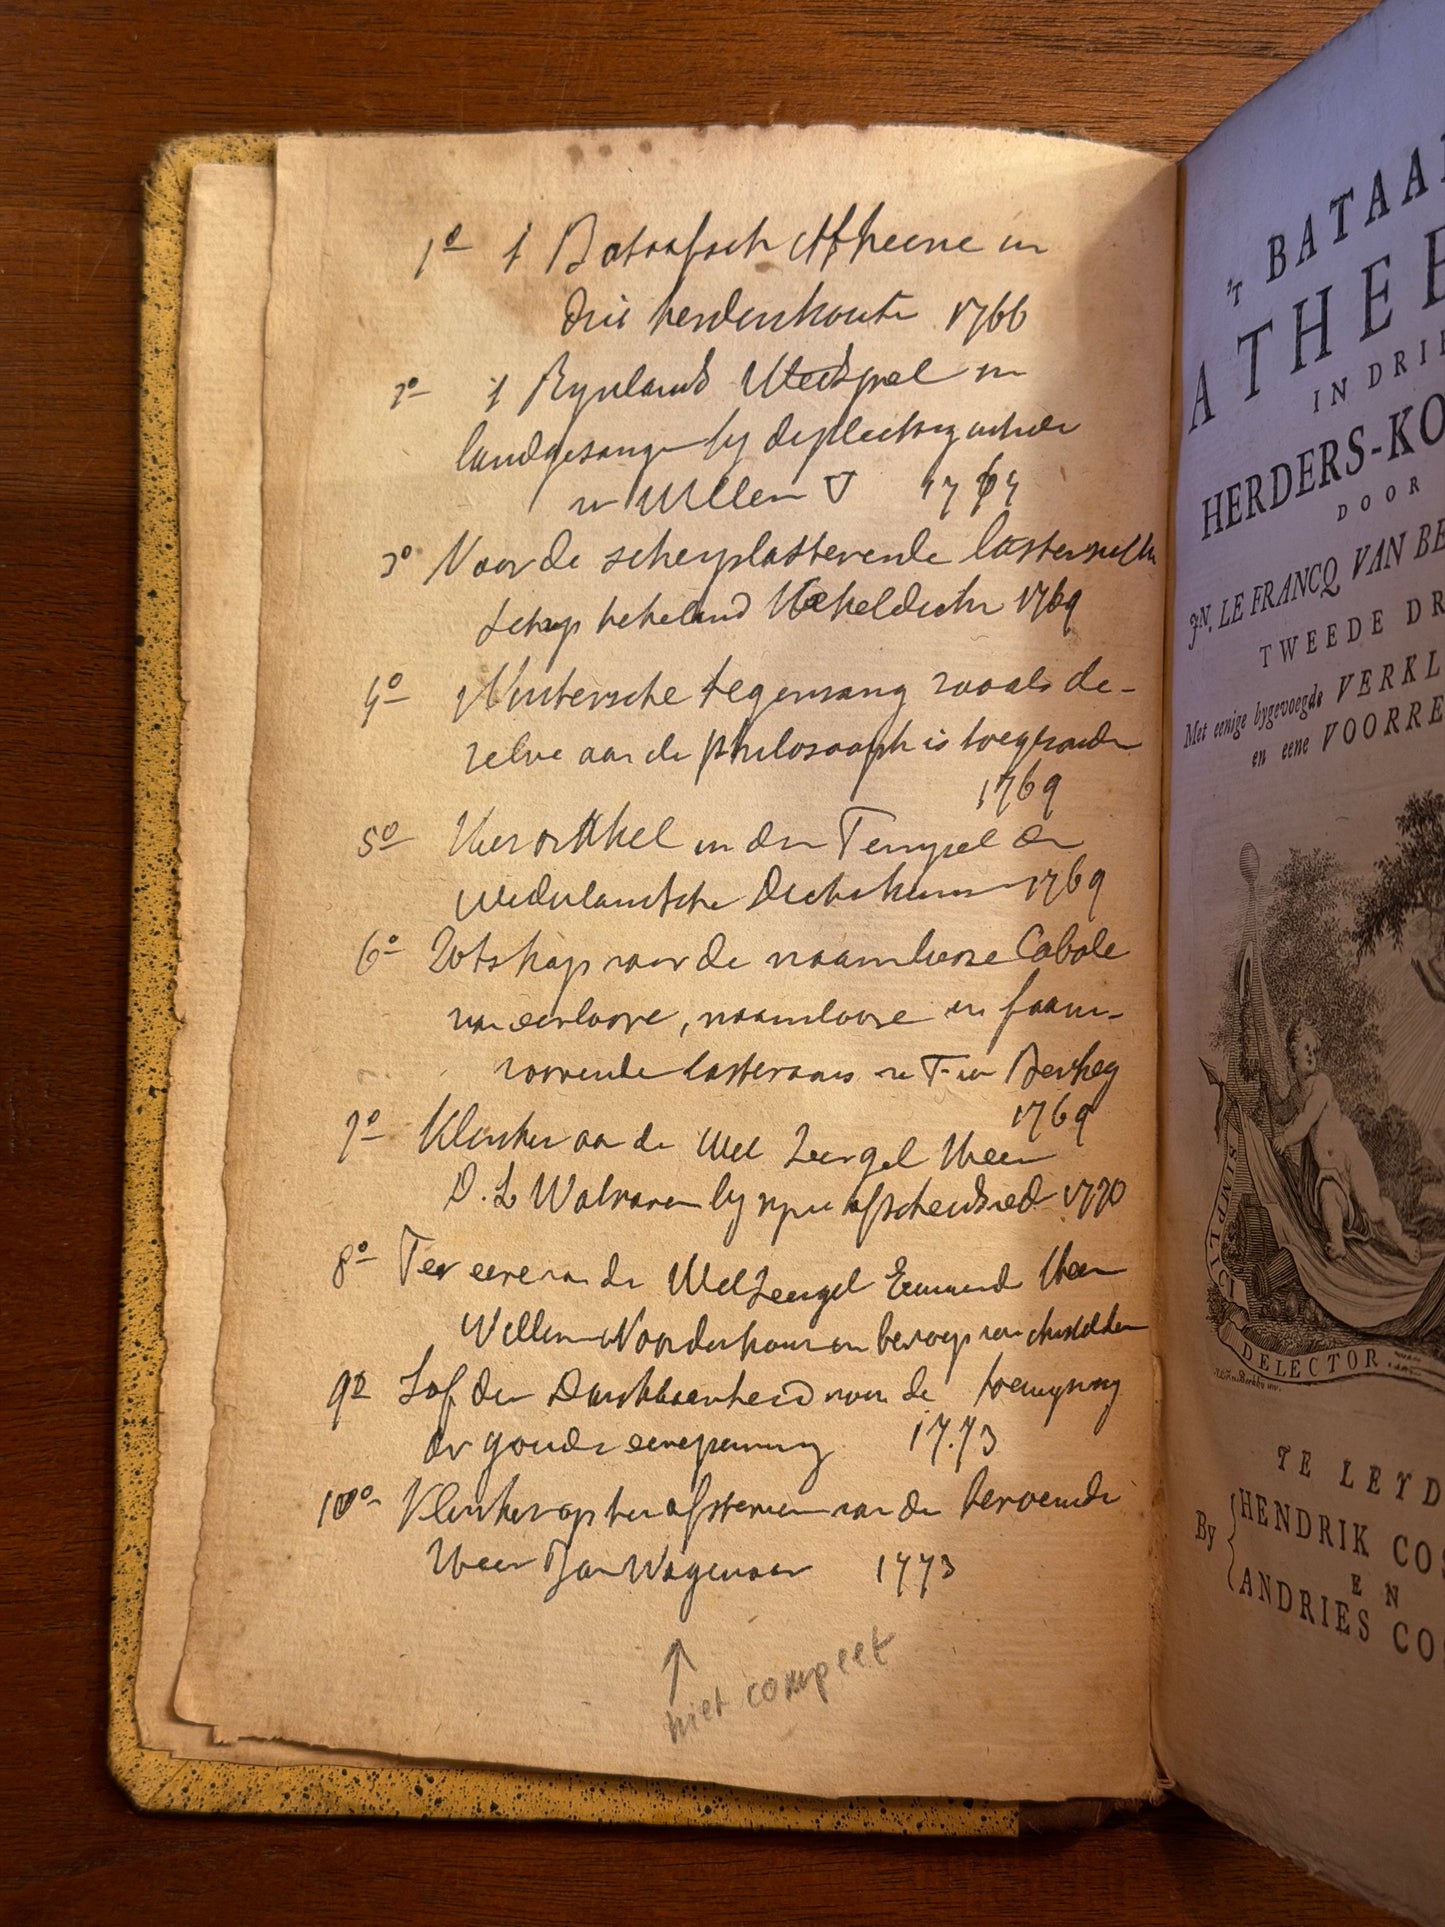 1º 't Bataafsch Atheene in
drie herderskouten 1766
2º 't Rynlands Veldspel in
landgezangen by de plechtige
van Willem V 1767
3º Voor de lasterzucht
hekelend Hekeldicht 1769
4º Wintersche tegenzang zooals de-
zelve aan de philosooph is toegezonden
1769
5º Vierorakel in den Tempel der
Nederlandsche Dichtkunst 1769
6º Rotskap voor de naamlooze Cabale
van eerlooze, naamlooze en faam-
roovende lasteraars
1769
7º Klinker aan de Wel Eergel Heer
D. L Walraven by zyne afscheidsrede 1770
8º Ter eere van de WelEergel Heer
Willem Noorderhout beroep van
9º Lof der Dankbaarheid voor de toewyzing
der goude eerepenning 17.73
10º Klinker op het afsterven van den beroemde
Heer Jan Wagenaar 1773
↑
niet compeet
'T BATAA
ATHEE
IN DRIE
HERDERS-KO
DOOR
JN. LE FRANCQ VAN BE
TWEEDE DR
Met eenige bygevoegde VERKL
en eene VOORRE
SIMPLICI
DELECTOR
TE LEYD
By HENDRIK COS
EN
ANDRIES CO